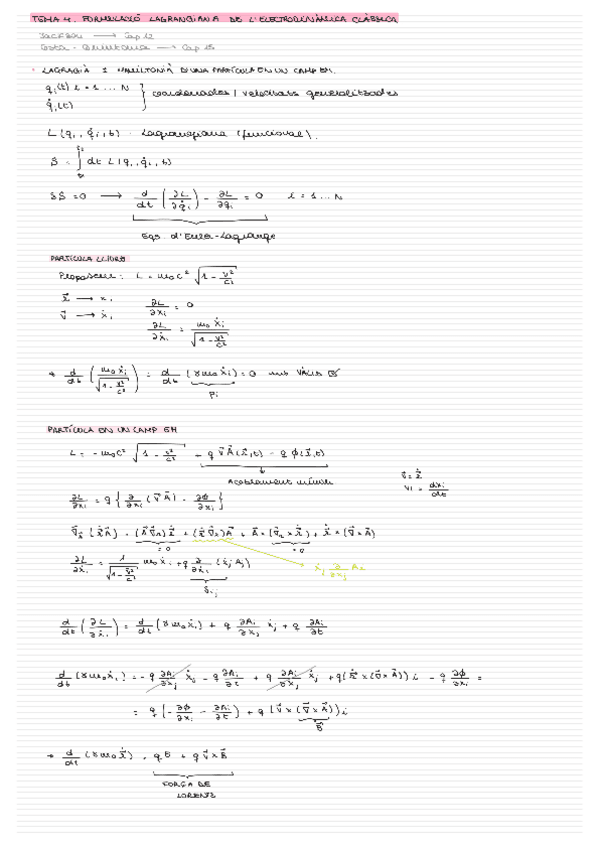 TEMA 4. FORMULACIÓ LAGRANGIANA DE L'ELECTRODINÀMICA CLÀSSICA
Jackson ⟶ Cap 12
⟶ Cap 15
· LAGRAGIÀ I HAMILTONIÀ D'UNA PARTÍCULA EN UN CAMP EM.
qᵢ(t) i = 1 ... N
q̇ᵢ(t)
} coordenades / velocitats generalitzades
L(qᵢ, q̇ᵢ, t) - Lagrangiana (funcional).
S = ∫ dt L(qᵢ, q̇ᵢ, t)
δS = 0 ⟶ d/dt (∂L/∂q̇ᵢ) - ∂L/∂qᵢ = 0 i = 1 ... N
Eqs. d'Euler-Lagrange
PARTÍCULA LLIURE
Proposem: L = m₀c² √(1 - v²/c²)
x⃗ ⟶ xᵢ ∂L/∂xᵢ = 0
v⃗ ⟶ ẋᵢ ∂L/∂ẋᵢ = m₀ẋᵢ/√(1 - v²/c²)
→ d/dt (m₀ẋᵢ/√(1 - v²/c²)) = d/dt (γm₀ẋᵢ) = 0
pᵢ
PARTÍCULA EN UN CAMP EM
L = -m₀c² √(1 - v²/c²) + q v⃗ A⃗(x⃗,t) - q ϕ(x⃗,t)
Acoblament mínim
v⃗ = ẋ⃗
vᵢ = dxᵢ/dt
∂L/∂xᵢ = q { ∂/∂xᵢ (v⃗ A⃗) - ∂ϕ/∂xᵢ }
∇⃗ₓ (ẋ⃗ A⃗) = (A⃗ ∇⃗ₓ) ẋ⃗ + (ẋ⃗ ∇⃗ₓ) A⃗ + A⃗ × (∇⃗ₓ × ẋ⃗) + ẋ⃗ × (∇⃗ × A⃗)
= 0 = 0
∂L/∂ẋᵢ = 1/√(1 - v²/c²) m₀ẋᵢ + q ∂/∂ẋᵢ (ẋⱼ Aⱼ)
ẋⱼ ∂/∂xⱼ Aᵢ
δᵢⱼ
d/dt (∂L/∂ẋᵢ) = d/dt (γm₀ẋᵢ) + q ∂Aᵢ/∂xⱼ ẋⱼ + q ∂Aᵢ/∂t
d/dt (γm₀ẋᵢ) = -q ∂Aᵢ/∂xⱼ ẋⱼ - q ∂Aᵢ/∂t + q ∂Aᵢ/∂xⱼ ẋⱼ + q (ẋ⃗ × (∇⃗ × A⃗))ᵢ - q ∂ϕ/∂xᵢ =
= q (-∂ϕ/∂xᵢ - ∂Aᵢ/∂t) + q (v⃗ × (∇⃗ × A⃗))ᵢ
B⃗
→ d/dt (γm₀ẋ⃗) = qE + q v⃗ × B⃗
FORÇA DE
LORENTZ